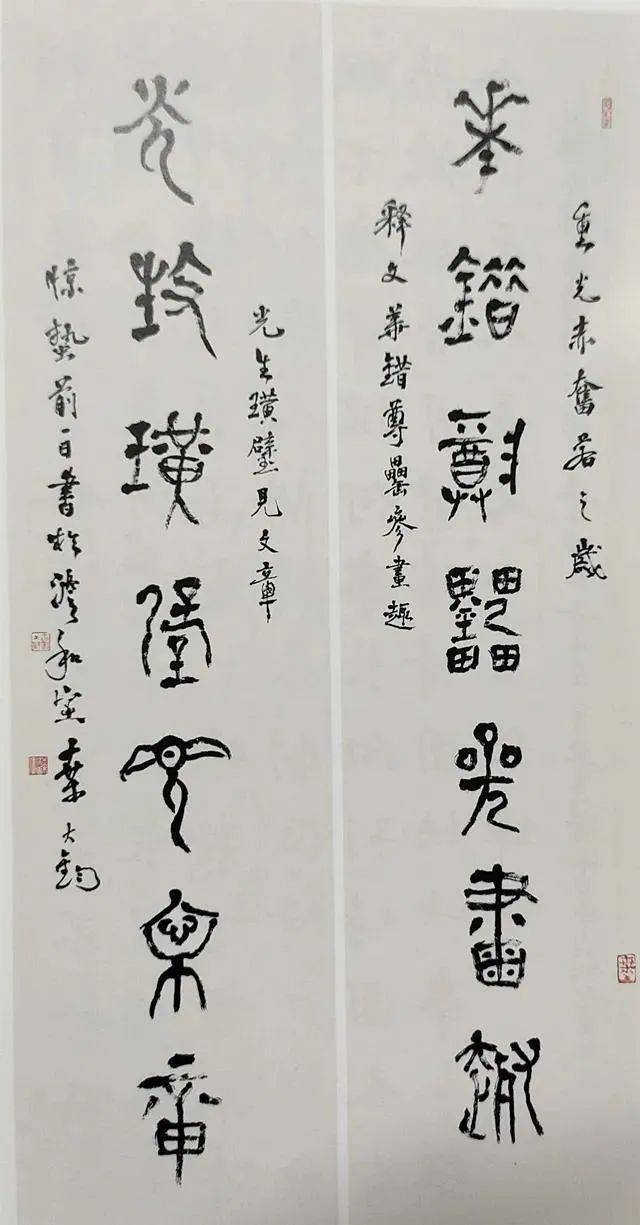 重光赤奮若之歲
華錯尊罍參畫趣
释文華錯尊罍參畫趣
光生璜璧見文章
光生璜璧見文章
惊蟄前一日書於和室葉大鈞